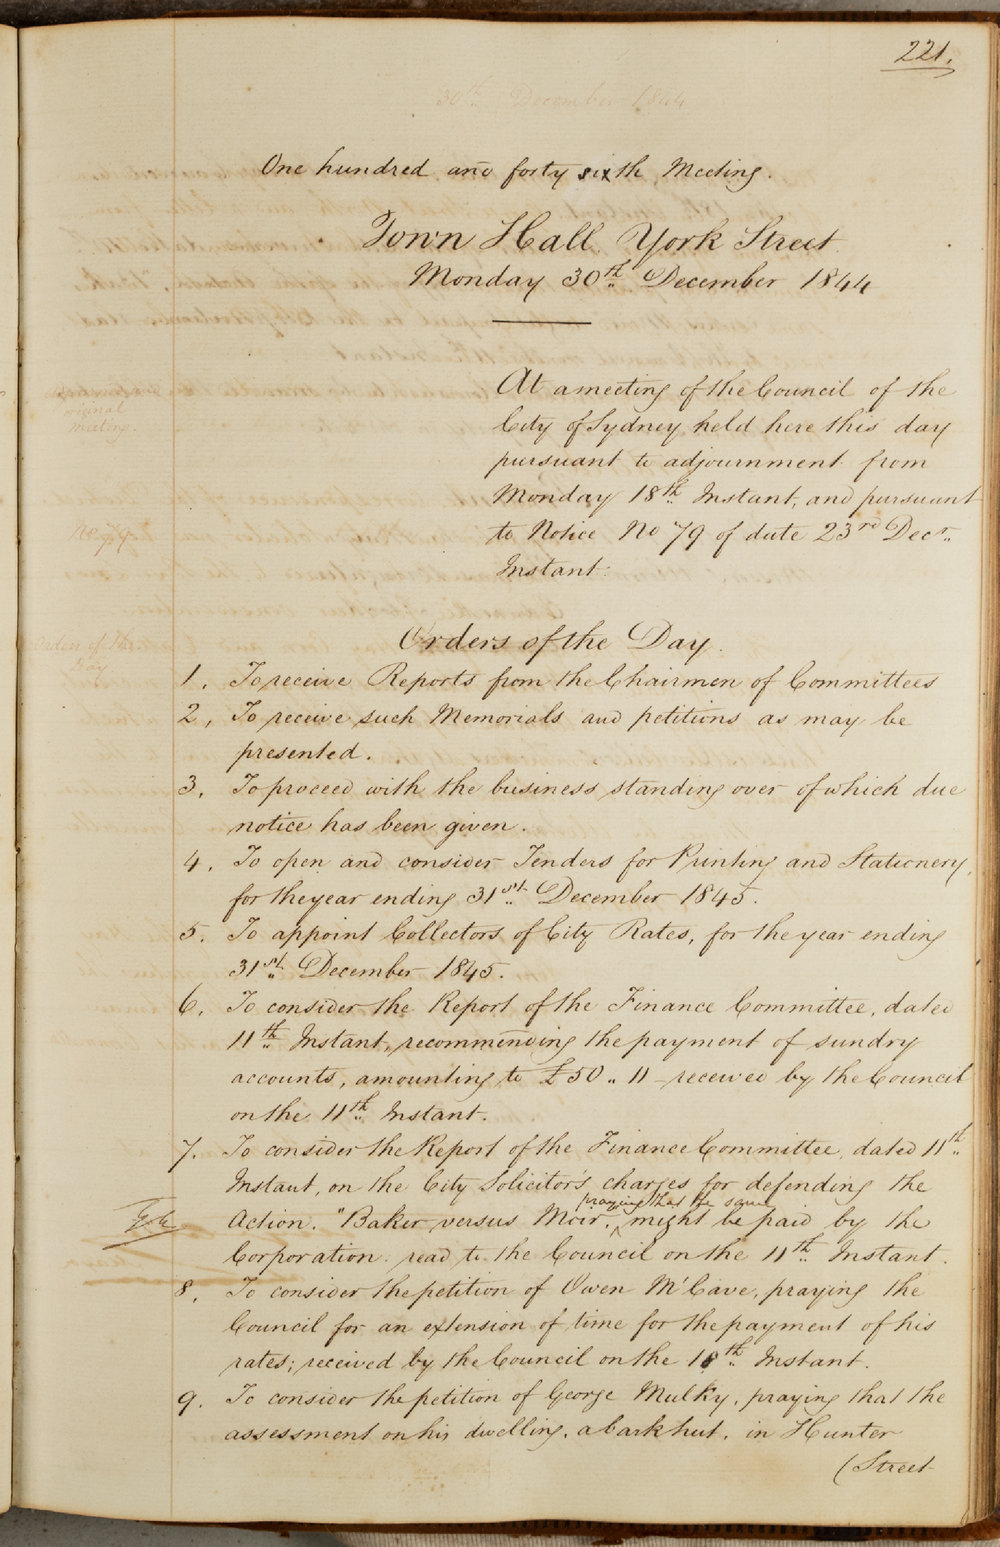 221.
30th December 1844
One hundred and forty sixth Meeting.
Town Hall York Street
Monday 30th December 1844
At a meeting of the Council of the
City of Sydney held here this day
pursuant to adjournment from
Monday 18th Instant, and pursuant
to Notice No 79 of date 23rd Decr.
Instant.
original
meeting.
No 79.
Orders of the
Day
Orders of the Day.
1. To receive Reports from the Chairmen of Committees
2, To receive such Memorials and petitions as may be
presented.
3. To proceed with the business standing over of which due
notice has been given.
4. To open and consider Tenders for Printing and Stationery,
for the year ending 31st December 1845.
5. To appoint Collectors of City Rates, for the year ending
31st December 1845.
6. To consider the Report of the Finance Committee, dated
11th Instant, recommending the payment of sundry
accounts, amounting to £50 " 11 - received by the Council
on the 11th Instant.
7. To consider the Report of the Finance Committee, dated 11th
Instant, on the City Solicitor's charges for defending the
praying that the same
Action. "Baker versus Moir. ^ might be paid by the
Corporation. read to the Council on the 11th Instant.
8. To consider the petition of Owen McCave, praying the
Council for an extension of time for the payment of his
rates; received by the Council on the 18th Instant.
9. To consider the petition of George Mulky, praying that the
assessment on his dwelling, a bark hut, in Hunter
(Street